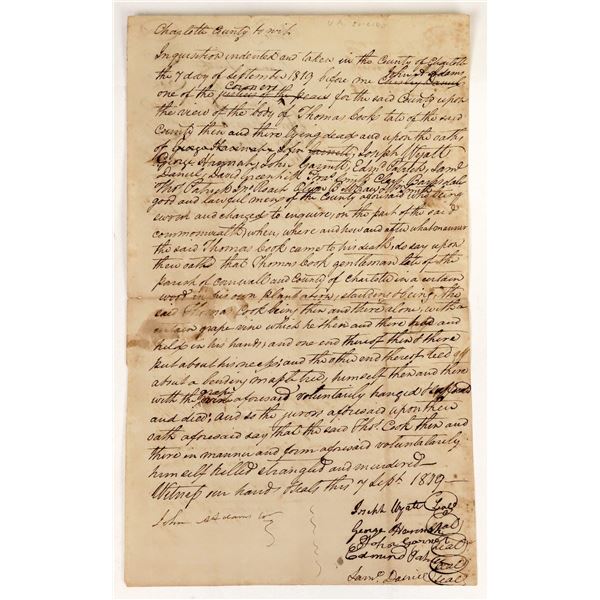 Charlotte County to wit
Inquisition indented and taken in the County of Charlotte
the 7 day of September 1819 before me John Adams
one of the Coroners justices of the peace for the said County upon
the view of the body of Thomas Cook late of the said
County then and there lying dead and upon the oaths
of Joseph Wyatt
George Hannah, John Garnett, Edm. Saml
Daniel, David Greenhill
Thos Patrick
good and lawful men of the County aforesaid who being
sworn and charged to enquire, on the part of the said
commonwealth, when, where and how and after what manner
the said Thomas Cook came to his death, do say upon
their oaths that Thomas Cook gentleman late of the
parish of Cornwall and County of Charlotte in a certain
wood in his own plantation, standing & being, the
said Thomas Cook being then and there alone, with a
certain grape vine which he then and there had and
held in his hands, and one end thereof then & there
put about his neck, and the other end thereof tied
about a bending maple tree, himself then and there
with the grape vine aforesaid voluntarily hanged &
and died; And so the jurors aforesaid upon their
oath aforesaid say that the said Thos Cook then and
there in manner and form aforesaid voluntarily
himself killed strangled and murdered—
Witness our hands & seals this 7 Sept. 1819—
John Adams
Joseph Wyatt Seal
George Hannah Seal
John Garnett Seal
Edmund Seal
Saml. Daniel Seal